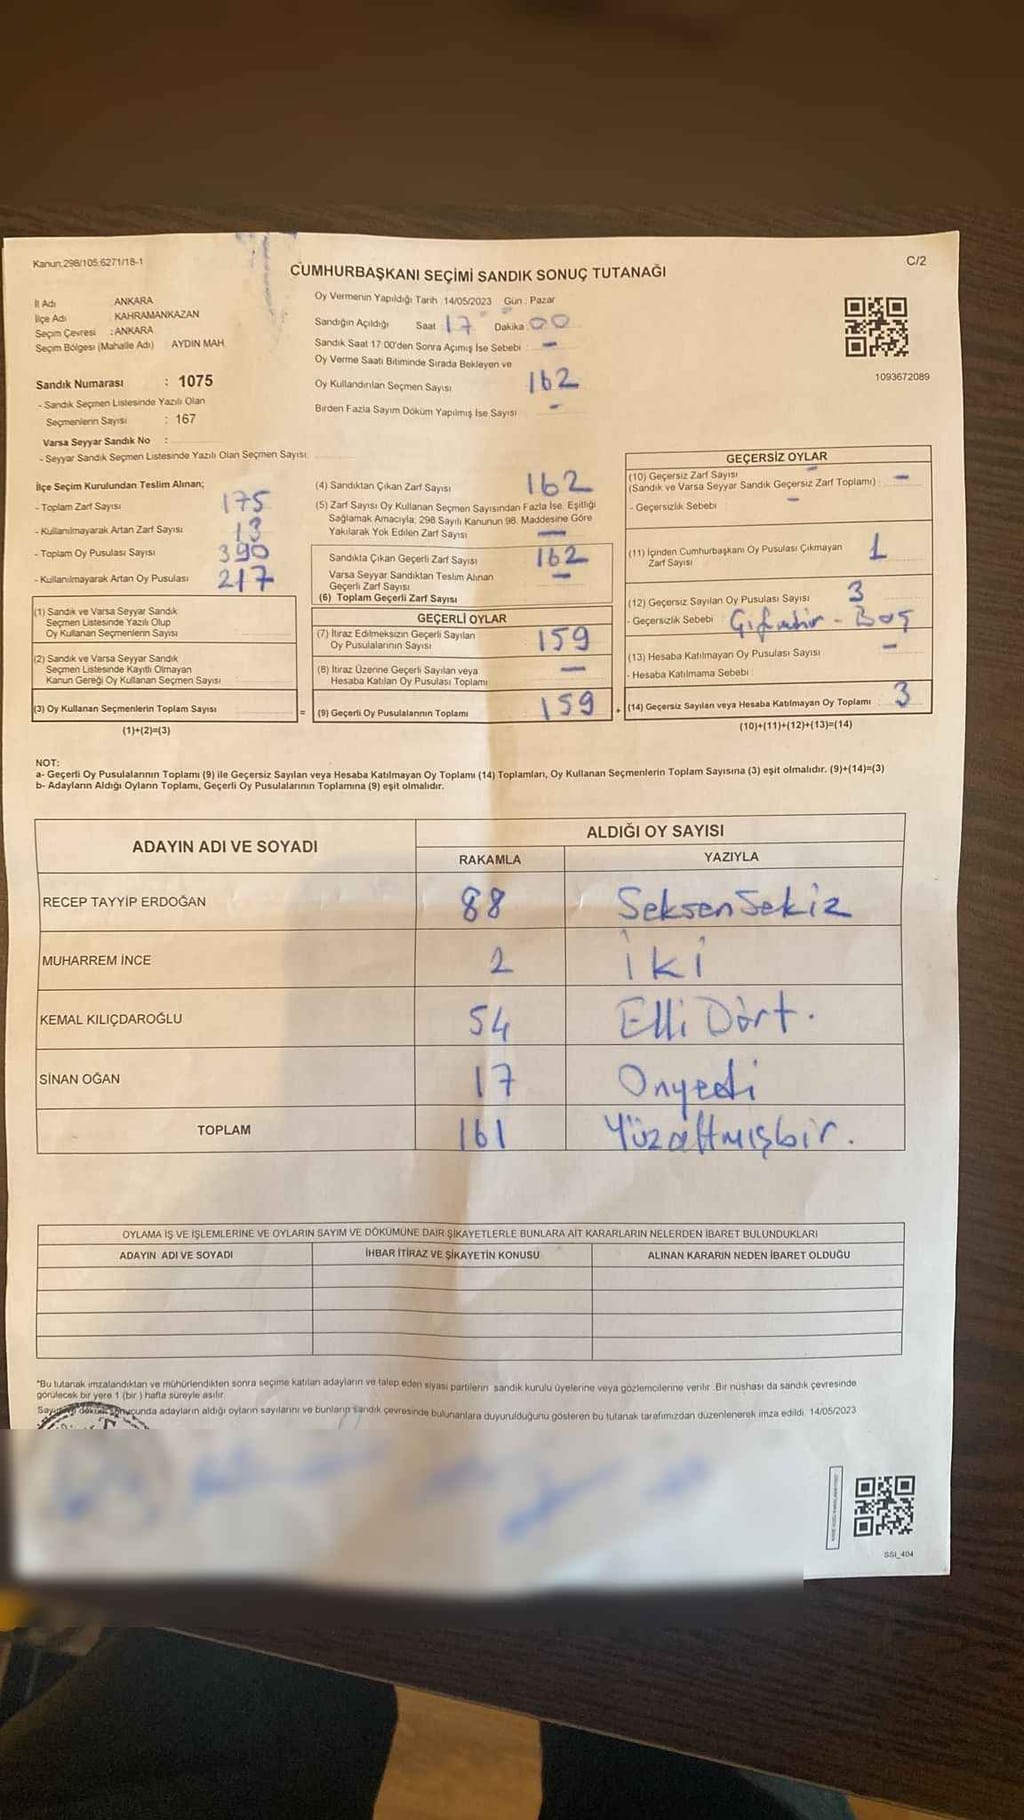 Kanun.298/105.6271/18-1
C/2
CUMHURBAŞKANI SEÇİMİ SANDIK SONUÇ TUTANAĞI
İl Adı ANKARA
İlçe Adı KAHRAMANKAZAN
Seçim Çevresi : ANKARA
Seçim Bölgesi (Mahalle Adı) AYDIN MAH
Sandık Numarası : 1075
- Sandık Seçmen Listesinde Yazılı Olan
Seçmenlerin Sayısı : 167
Varsa Seyyar Sandık No :
- Seyyar Sandık Seçmen Listesinde Yazılı Olan Seçmen Sayısı
Oy Vermenin Yapıldığı Tarih 14/05/2023 Gün : Pazar
Sandığın Açıldığı Saat 17 Dakika 00
Sandık Saat 17:00'den Sonra Açımış İse Sebebi : -
Oy Verme Saati Bitiminde Sırada Bekleyen ve
Oy Kullandırılan Seçmen Sayısı 162
Birden Fazla Sayım Döküm Yapılmış İse Sayısı -
1093672089
İlçe Seçim Kurulundan Teslim Alınan;
- Toplam Zarf Sayısı 175
- Kullanılmayarak Artan Zarf Sayısı 13
- Toplam Oy Pusulası Sayısı 390
- Kullanılmayarak Artan Oy Pusulası 217
(1) Sandık ve Varsa Seyyar Sandık
Seçmen Listesinde Yazılı Olup
Oy Kullanan Seçmenlerin Sayısı
(2) Sandık ve Varsa Seyyar Sandık
Seçmen Listesinde Kayıtlı Olmayan
Kanun Gereği Oy Kullanan Seçmen Sayısı
(3) Oy Kullanan Seçmenlerin Toplam Sayısı
=
(1)+(2)=(3)
(4) Sandıktan Çıkan Zarf Sayısı 162
(5) Zarf Sayısı Oy Kullanan Seçmen Sayısından Fazla İse, Eşitliği
Sağlamak Amacıyla; 298 Sayılı Kanunun 98. Maddesine Göre
Yakılarak Yok Edilen Zarf Sayısı -
Sandıkta Çıkan Geçerli Zarf Sayısı 162
Varsa Seyyar Sandıktan Teslim Alınan
Geçerli Zarf Sayısı -
(6) Toplam Geçerli Zarf Sayısı
GEÇERLİ OYLAR
(7) İtiraz Edilmeksizin Geçerli Sayılan
Oy Pusulalarının Sayısı 159
(8) İtiraz Üzerine Geçerli Sayılan veya
Hesaba Katılan Oy Pusulası Toplamı -
(9) Geçerli Oy Pusulalarının Toplamı 159
+
GEÇERSİZ OYLAR
(10) Geçersiz Zarf Sayısı -
(Sandık ve Varsa Seyyar Sandık Geçersiz Zarf Toplamı) : -
- Geçersizlik Sebebi -
(11) İçinden Cumhurbaşkanı Oy Pusulası Çıkmayan
Zarf Sayısı 1
(12) Geçersiz Sayılan Oy Pusulası Sayısı 3
- Geçersizlik Sebebi : - Boş
(13) Hesaba Katılmayan Oy Pusulası Sayısı -
- Hesaba Katılmama Sebebi :
(14) Geçersiz Sayılan veya Hesaba Katılmayan Oy Toplamı : 3
(10)+(11)+(12)+(13)=(14)
NOT:
a- Geçerli Oy Pusulalarının Toplamı (9) ile Geçersiz Sayılan veya Hesaba Katılmayan Oy Toplamı (14) Toplamları, Oy Kullanan Seçmenlerin Toplam Sayısına (3) eşit olmalıdır. (9)+(14)=(3)
b- Adayların Aldığı Oyların Toplamı, Geçerli Oy Pusulalarının Toplamına (9) eşit olmalıdır.
ADAYIN ADI VE SOYADI
ALDIĞI OY SAYISI
RAKAMLA YAZIYLA
RECEP TAYYİP ERDOĞAN 88 SeksenSekiz
MUHARREM İNCE 2 İki
KEMAL KILIÇDAROĞLU 54 Elli Dört.
SİNAN OĞAN 17 Onyedi
TOPLAM 161 Yüzaltmışbir.
OYLAMA İŞ VE İŞLEMLERİNE VE OYLARIN SAYIM VE DÖKÜMÜNE DAİR ŞİKAYETLERLE BUNLARA AİT KARARLARIN NELERDEN İBARET BULUNDUKLARI
ADAYIN ADI VE SOYADI İHBAR İTİRAZ VE ŞİKAYETİN KONUSU ALINAN KARARIN NEDEN İBARET OLDUĞU
"Bu tutanak imzalandıktan ve mühürlendikten sonra seçime katılan adayların ve talep eden siyasi partilerin sandık kurulu üyelerine veya gözlemcilerine verilir. Bir nüshası da sandık çevresinde
görülecek bir yere 1 (bir ) hafta süreyle asılır.
Sayım ve döküm sonucunda adayların aldığı oyların sayılarını ve bunların sandık çevresinde bulunanlara duyurulduğunu gösteren bu tutanak tarafımızdan düzenlenerek imza edildi. 14/05/2023
SSI_404